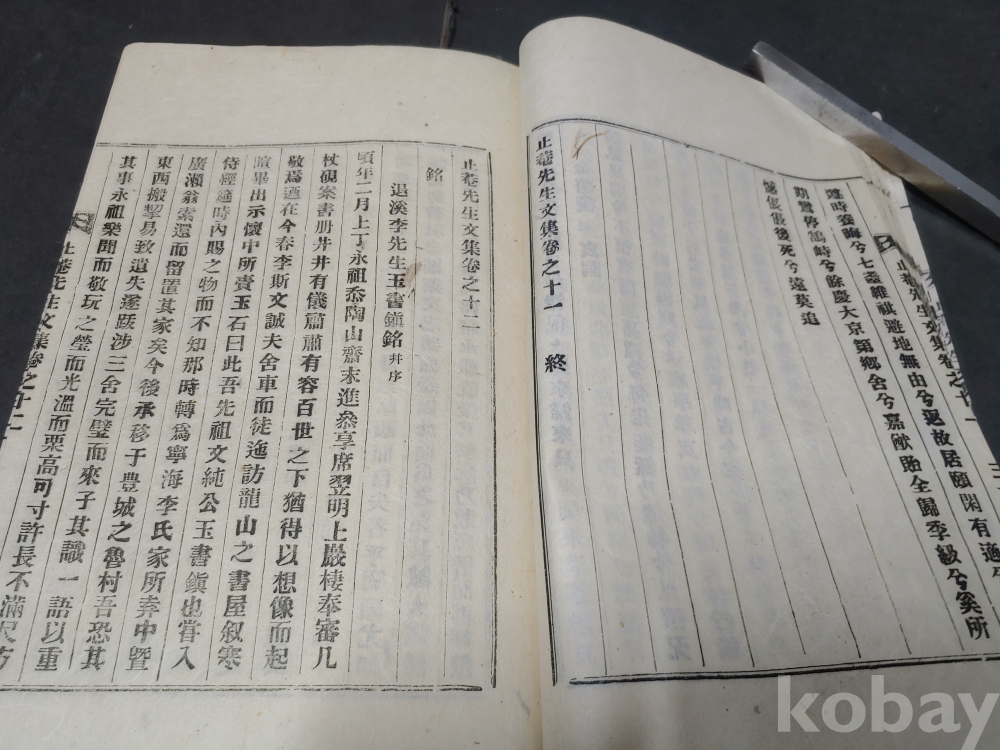 止菴先生文集卷之十一
遯故居頤閑有適兮
遵時養晦兮七耋維祺避地無由兮
餘慶大京第鄉舍兮嘉猷貽全歸季級兮奚所
後死兮遠莫追
止菴先生文集卷之十一 終
止菴先生文集卷之十二
銘
退溪李先生玉書鎭銘 幷序
頃年二月上丁永祖忝陶山齋末進參享席翌明上巖棲奉審几
杖硯案書册井井有儀肅肅有容百世之下猶得以想像而起
敬焉迺在今春李斯文誠夫舍車而徒迤訪龍山之書屋叙寒
暄畢出示懷中所賷玉石曰此吾先祖文純公玉書鎭也嘗入
侍經筵時內賜之物而不知那時轉爲寧海李氏家所索中暨
廣瀨翁索還而留置其家矣今後承移于豊城之魯村吾恐其
東西搬挈易致遺失遂跋涉三舍完璧而來子其識一語以重
其事永祖樂聞而敬玩之瑩而光溫而栗高可寸許長不滿尺方
止菴先生文集卷之十二
kobay